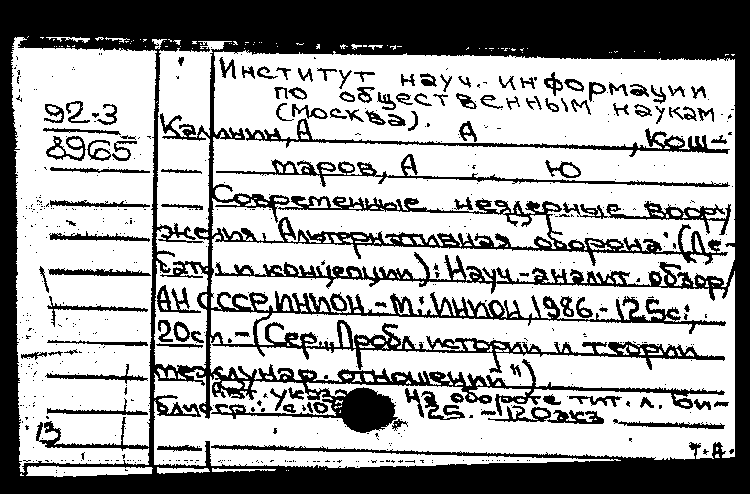 Институт науч. информации
по общественным наукам
(Москва).
92-3
8965
Калинин, А А , Кош-
таров, А Ю
Современные неядерные воору
жения. Альтернативная оборона: (Де-
баты и концепции): Науч.-аналит. обзор/
АН СССР, ИНИОН.-М.: ИНИОН, 1986.-125с.;
20см.-(Сер. "Пробл. истории и теории
междунар. отношений").
Авт. указ на обороте тит. л. Би-
блиогр.: с.106 125.-120экз.
13
Т.А.